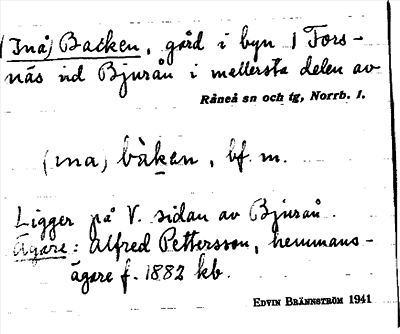 (Inå) Backen, gård i byn 1 Fors-
näs vid Bjurån i mellersta delen av
Råneå sn och tg, Norrb. l.
(ɪna) bàkən, bf. m.
Ligger på V. sidan av Bjurån.
Ägare: Alfred Pettersson, hemmans-
ägare f. 1882 kb.
EDVIN BRÄNNSTRÖM 1941